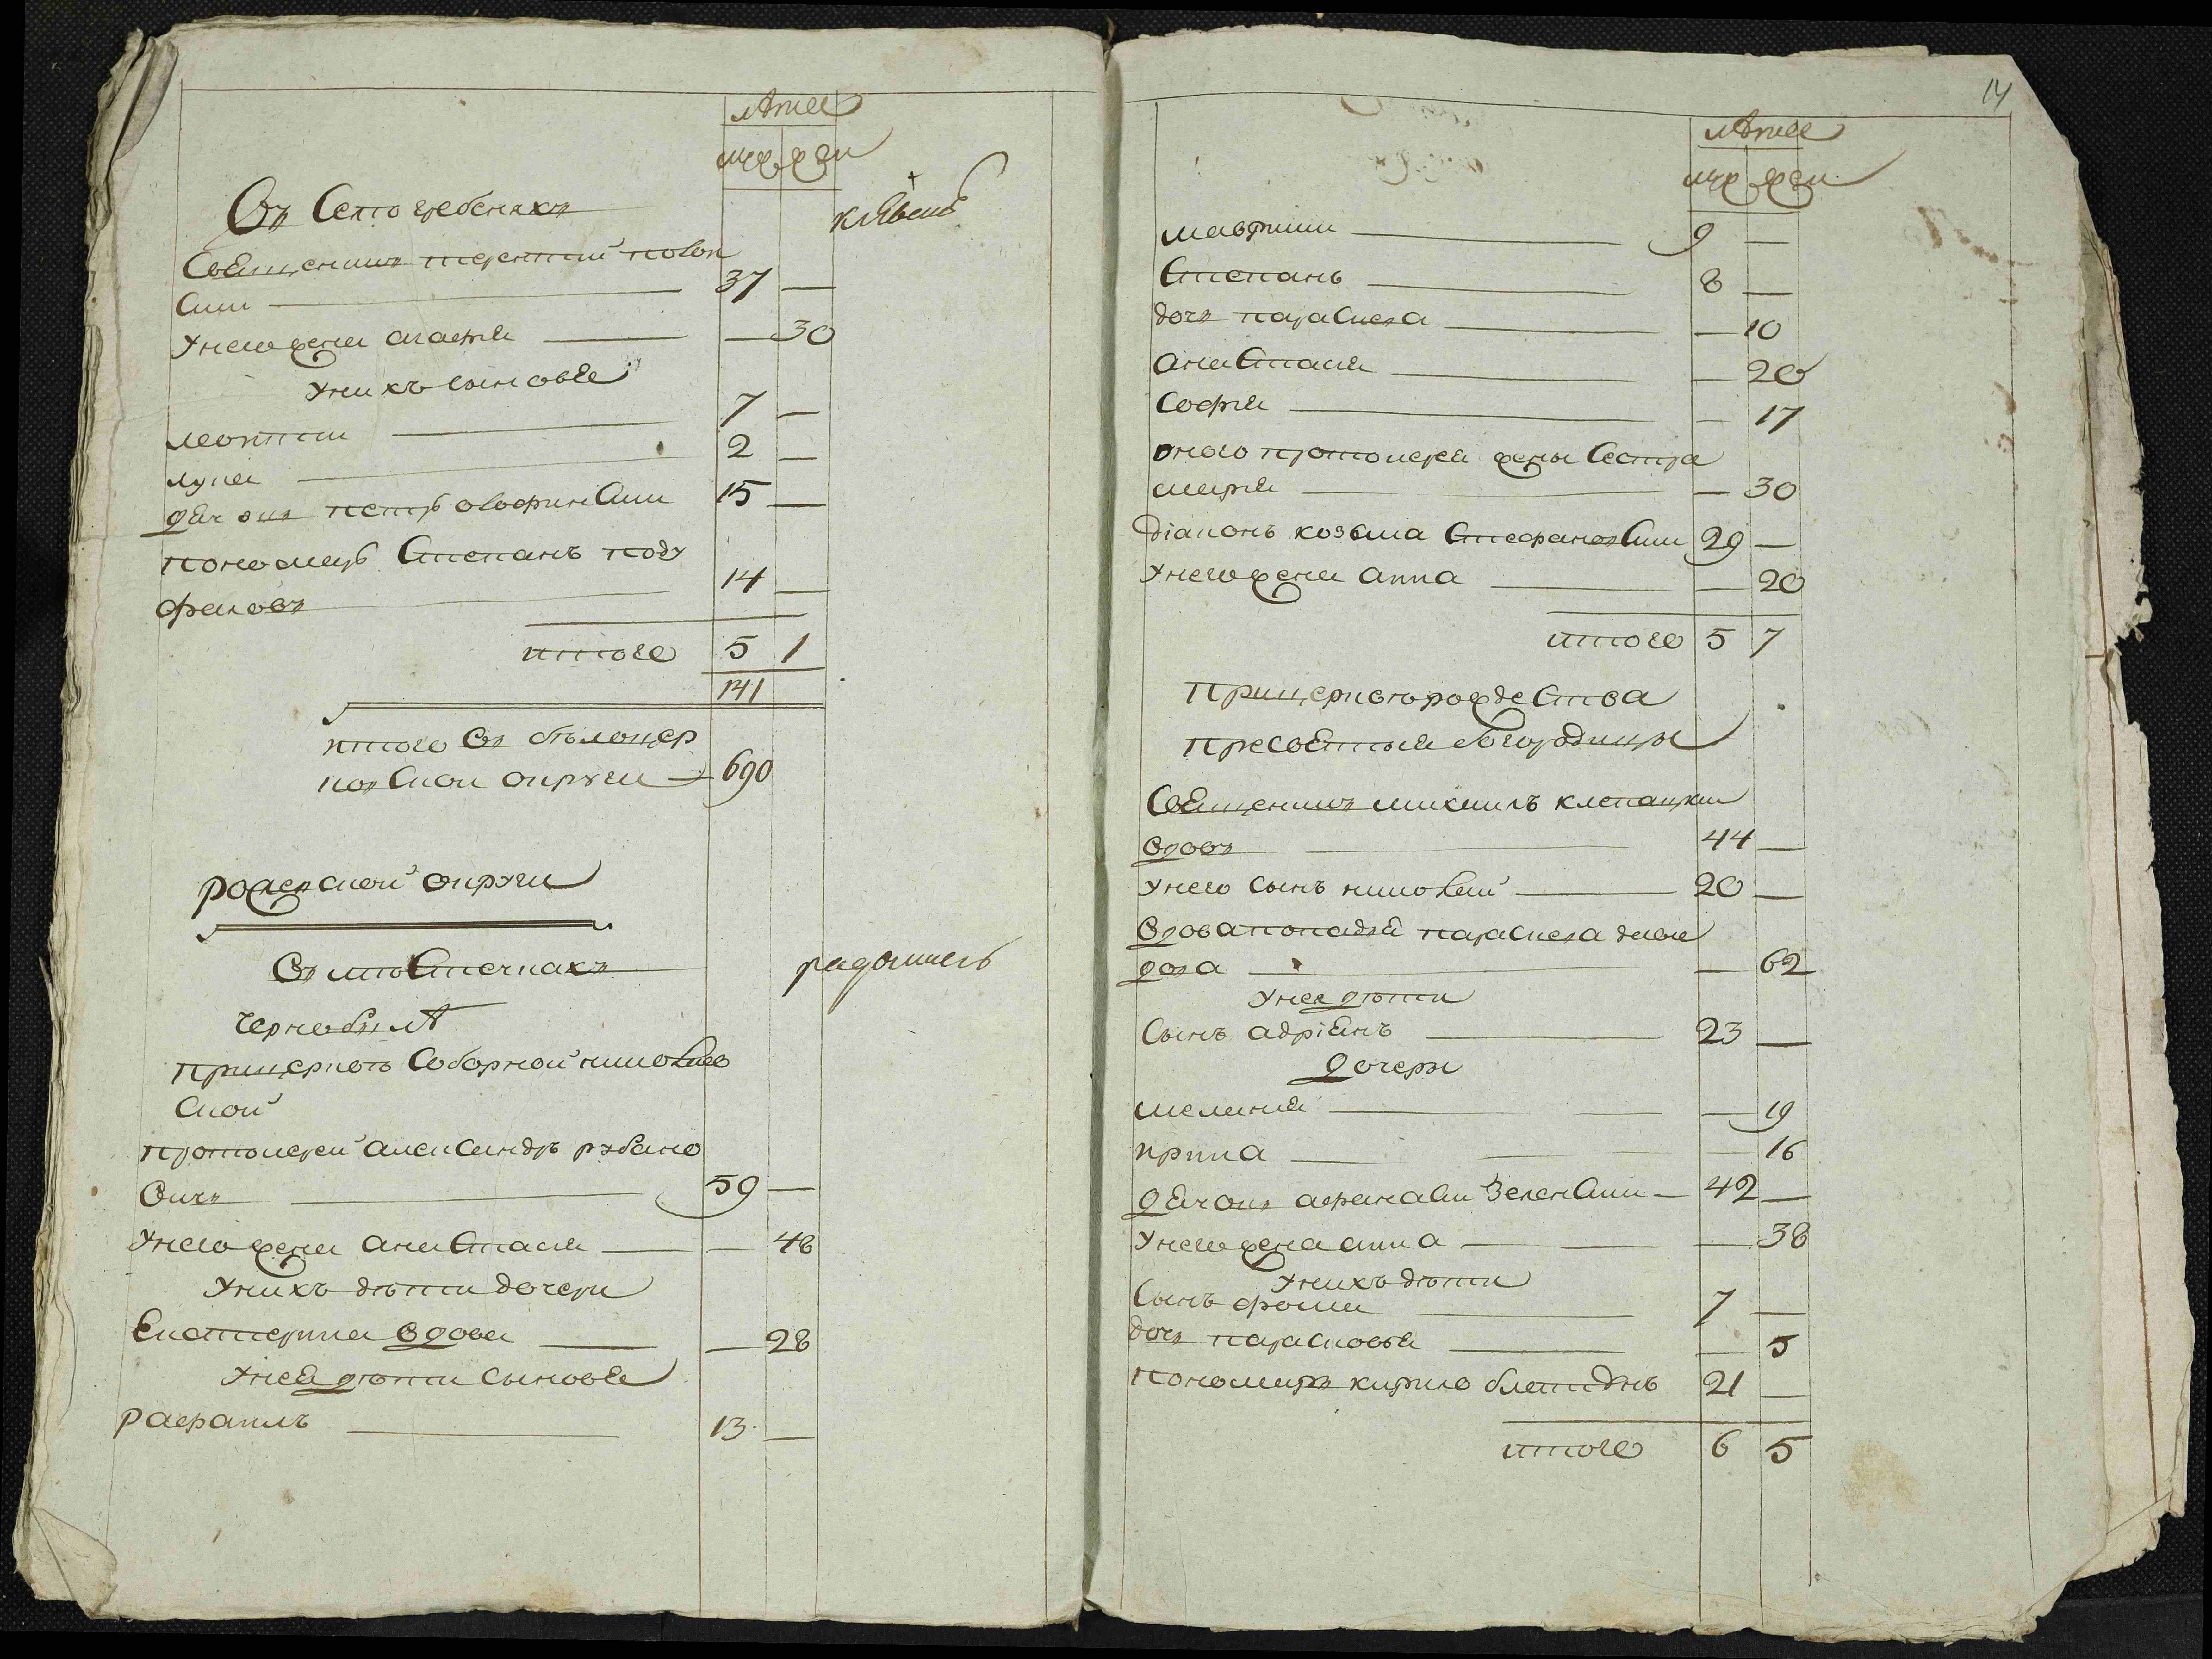 лѣтее
муж жен
Въ Селѣ гребенкахъ
Священникъ терентий
ски 37 —
У него жена агафия — 30
У нихъ сыновья
леонтии 7 —
лука 2 —
дьячокъ петръ 15 —
пономаръ Степанъ
14 —
итого 5 1
141
итого въ бѣлоцер
ковской округи 690
радомыслской округи
Въ мѣстечкахъ
чернобылѣ
При церквѣ Соборной николаев
ской
протоиерей александръ рубано
вичъ 59 —
У него жена анастасия — 48
У нихъ дѣти дочери
Екатерина вдова — 28
У нея дѣти сыновья
рафаилъ 13 —
14
лѣтее
муж жен
8 —
Степанъ 8 —
дочь параскева — 10
анастасия — 20
софия — 17
оного протоиерея жены сестра
мария — 30
діаконъ козьма Стефановски 29 —
У него жена анна — 20
итого 5 7
При церквѣ рождества
пресвятыя богородицы
Священникъ михаилъ клепацки
вдовъ 44 —
У него сынъ николай 20 —
вдова попадья параскева
— 62
У нея дѣти
Сынъ адріянъ 23 —
дочери
мелания — 19
ирина — 16
дьячокъ афанаси Зеленски 42 —
У него жена анна — 38
У нихъ дѣти
Сынъ фома 7 —
дочь парасковья — 5
пономаръ кирило 21 —
итого 6 5